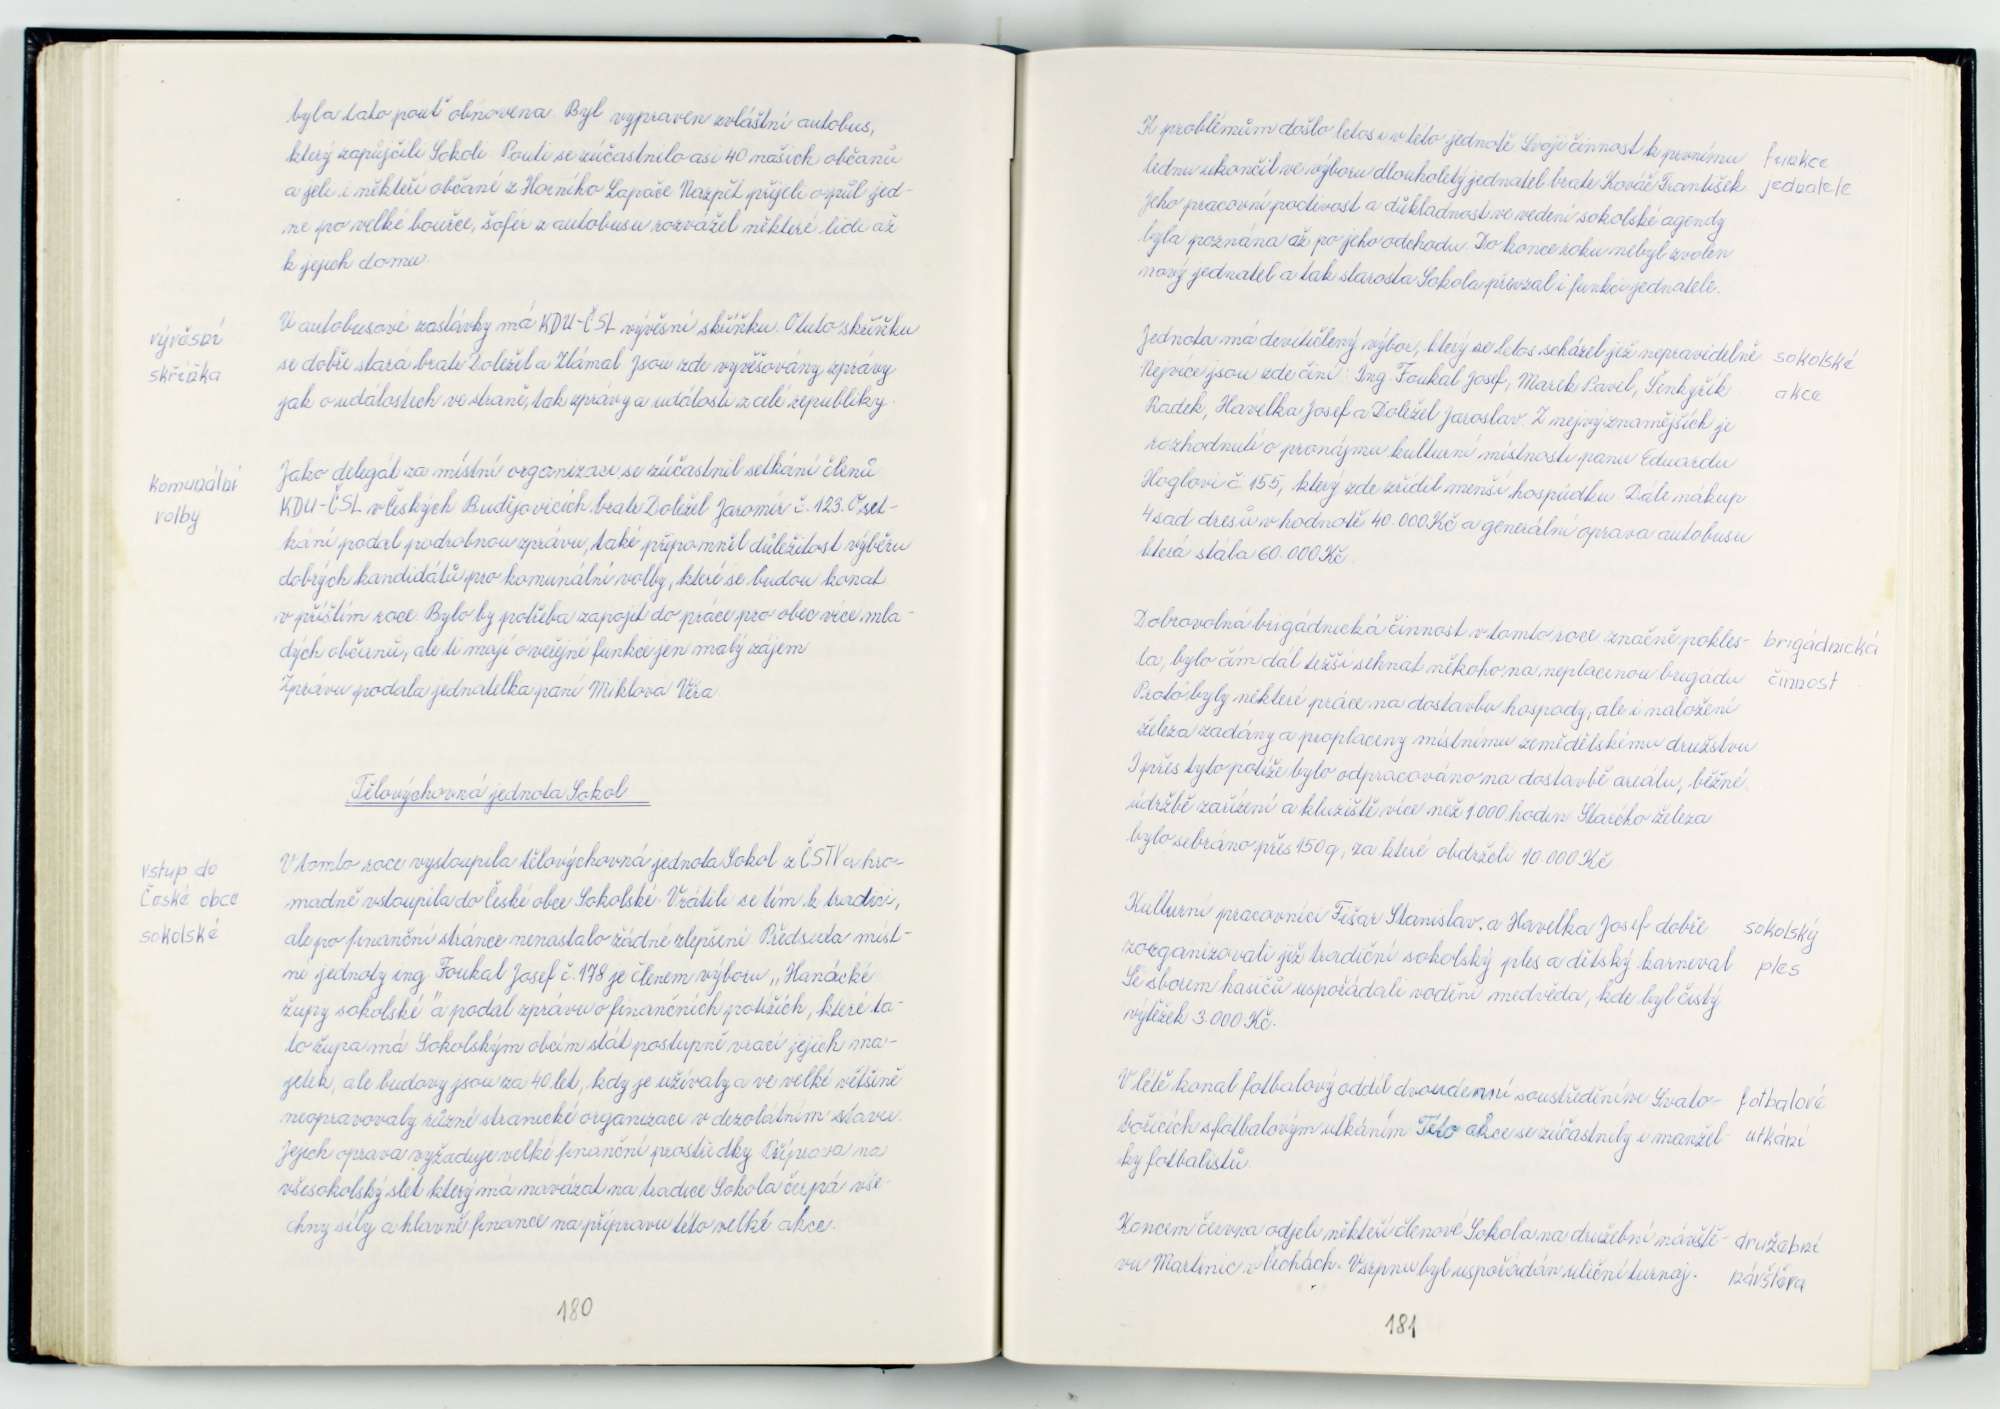 byla tato pouť obnovena. Byl vypraven zvláštní autobus,
který zapůjčili Sokoli. Pouti se zúčastnilo asi 40 našich občanů
a jeli i někteří občané z Horního Lapače. Nazpět přijeli o půl jed-
né po velké bouřce, šofér z autobusu rozvážel některé lidi až
k jejich domu.
vývěsní
skřížka
U autobusové zastávky má KDU-ČSL vývěsní skříňku. O tuto skříňku
se dobře stará bratr Doležel a Zlámal. Jsou zde vyvěšovány zprávy
jak o událostech ve straně, tak zprávy a události z celé republiky.
komunální
volby
Jako delegát za místní organizaci se zúčastnil setkání členů
KDU-ČSL v Českých Budějovicích bratr Doležel Jaromír č. 123. O set-
kání podal podrobnou zprávu, také připomněl důležitost výběru
dobrých kandidátů pro komunální volby, které se budou konat
v příštím roce. Bylo by potřeba zapojit do práce pro obec více mla-
dých občanů, ale ti mají o veřejné funkce jen malý zájem
Zprávu podala jednatelka paní Miklova Věra.
Tělovýchovná jednota Sokol
vstup do
České obce
sokolské
V tomto roce vystoupila tělovýchovná jednota Sokol z ČSTV a hro-
madně vstoupila do České obce Sokolské. Vrátili se tím k tradici,
ale po finanční stránce nenastalo žádné zlepšení. Předseda míst-
ní jednoty ing. Foukal Josef č. 178 je členem výboru „Hanácké
župy sokolské" a podal zprávu o finančních potížích, které ta-
to župa má. Sokolským obcím stát postupně vrací jejich ma-
jetek, ale budovy jsou za 40 let, kdy je užívaly a ve velké většině
neopravovaly různé stranické organizace v dezolátním stavu.
Jejich oprava vyžaduje velké finanční prostředky. Příprava na
všesokolský slet který má navázat na tradice Sokola čerpá vše-
chny síly a hlavně finance na přípravu této velké akce.
180
K problémům došlo letos i v této jednotě. Svoji činnost k prvnímu
lednu ukončil ve výboru dlouholetý jednatel bratr Kovář František
Jeho pracovní poctivost a důkladnost ve vedení sokolské agendy
byla poznána až po jeho odchodu. Do konce roku nebyl zvolen
nový jednatel a tak starosta Sokola převzal i funkci jednatele.
funkce
jednatele
Jednota má devítičlenný výbor, který se letos scházel již nepravidelně
Nejvíce jsou zde činí: Ing Foukal Josef, Marek Pavel, Šenkyřík
Radek, Havelka Josef a Doležel Jaroslav. Z nejvýznamějších je
rozhodnutí o pronájmu kulturní místnosti panu Eduardu
Hoglovi č. 155, který zde zřídil menší hospůdku. Dále nákup
4 sad dresů v hodnotě 40.000 Kč a generální oprava autobusu
která stála 60.000 Kč.
sokolské
akce
Dobrovolná brigádnická činnost v tomto roce značně pokles-
la, bylo čím dál težší sehnat někoho na neplacenou brigadu
Proto byly některé práce na dostavbu hospody, ale i naložení
železa zadány a proplaceny místnímu zemědělskému družstvu
I přes tyto potíže bylo odpracováno na dostavbě areálu, běžné
údržbě zařízení a kluziště více než 1.000 hodin. Starého železa
bylo sebráno přes 150 q, za které obdrželi 10.000 Kč
brigádnická
činnost
Kulturní pracovníci Fišar Stanislav a Havelka Josef dobře
zorganizovali již tradiční sokolský ples a dětský karneval
Se sborem hasičů uspořádali vodění medvěda, kde byl čistý
výtěžek 3.000 Kč.
sokolský
ples
V létě konal fotbalový oddíl dvoudenní soustředění ve Svato-
bořicích s fotbalovým utkáním. Této akce se zúčastnily i manžel-
ky fotbalistů.
fotbalové
utkání
Koncem června odjeli někteří členové Sokola na družební návště-
vu Martinic v Čechách. V srpnu byl uspořádán uliční turnaj.
družební
návštěva
181